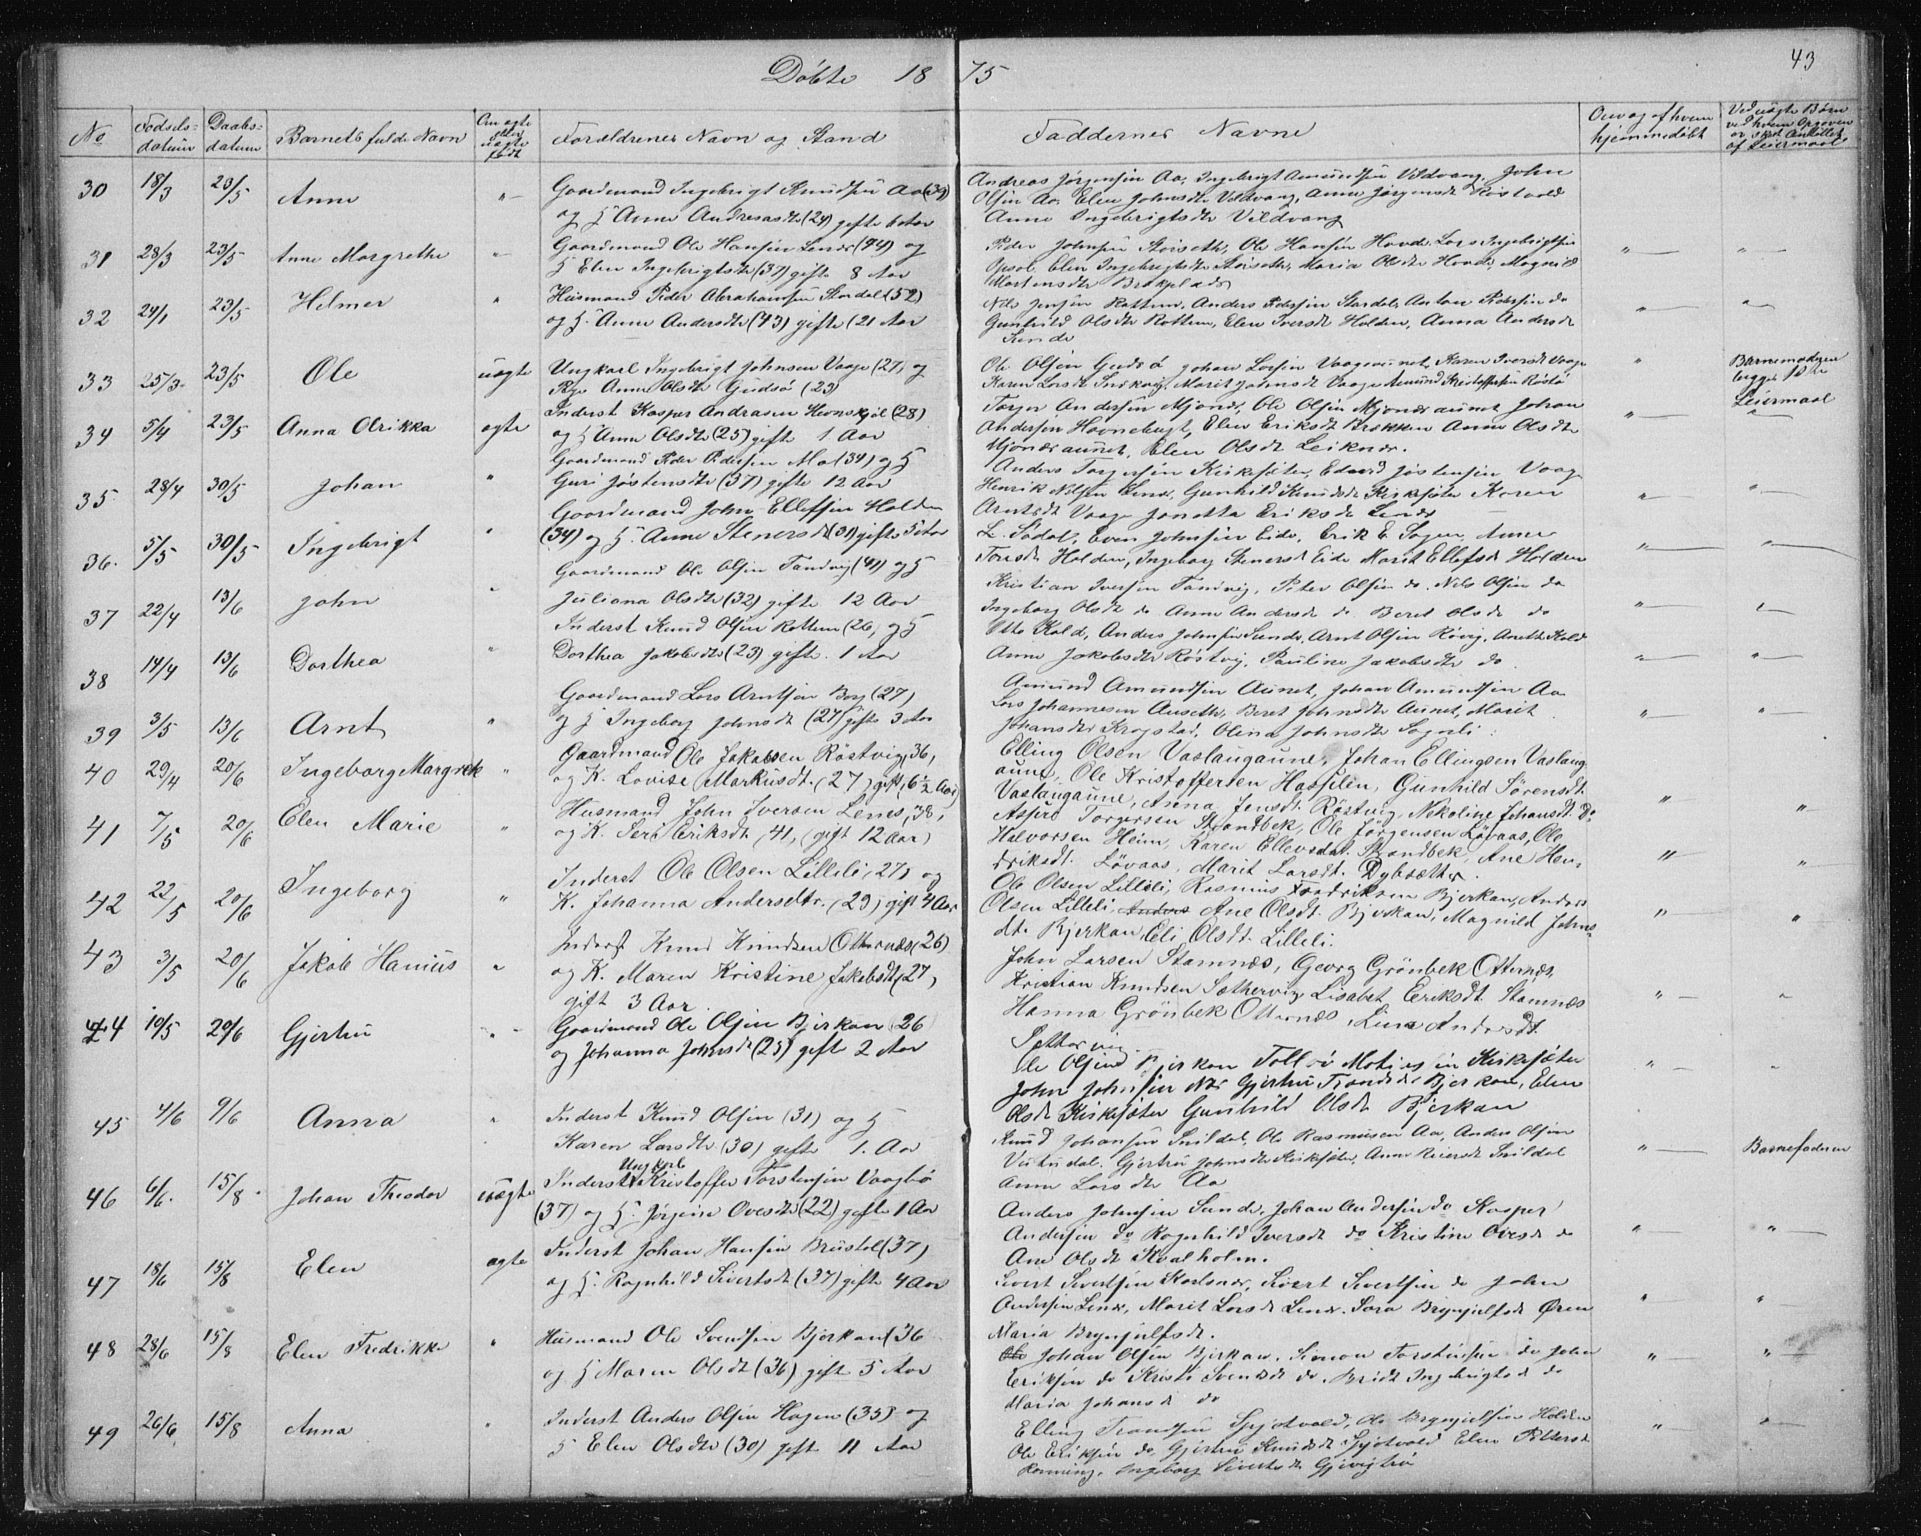 43
Döbte 1875
No Födsels-datum Daabs-datum Barnets fulde Navn Om ægte eller uægte født Forældrenes Navn og Stand Faddernes Navne Om og af hvem hjemmedøbt Ved uægte Børn ved hvem Opgaven er skeet af Leiermaal
30 18/3 23/5 Anne " Gaardmand Ingebrigt Knudsen Aa (39)
og H Anne Andreasdtr (24) gifte 6 Aar
Andreas Jörgensen Aa, Ingebrigt Amundsen Vildvang, John
Olsen Aa, Elen Johnsdtr Vildvang, Anne Jörgensdt Röstvold
Anne Ingebrigtsdtr Vildvang
31 28/3 23/5 Anne Margrethe " Gaardmand Ole Hansen Lenes (44) og
H Elen Ingebrigtsdtr (37) gifte 8 Aar
Peder Johnsen Stoiseth, Ole Hansen Hovde, Lars Ingebrigtsen
Opsal, Elen Ingebrigtsdtr Stoiseth, Maria Olsdtr Hovde, Magnild
Mortensdtr Brækplads
32 24/1 23/5 Helmer " Husmand Peder Abrahamsen Stordal (52)
og H. Anne Andersdtr (43) gifte (21 Aar
Nils Jensen Rottum, Anders Pedersen Stordal, Anton Pedersen do
Gunhild Olsdtr Rottum, Elen Iversdt Holden, Anna Andersdt
Sunde
33 25/3 23/5 Ole uægte Ungkarl Ingebrigt Johnsen Vaage (27, og
Pige Anne Olsdtr Gudsö (23)
Ole Olsen Gudsö Johan Larsen Vaageaunet, Karen Iversdt Vaage
Karen Larsdt, Marit Johnsdt Vaage Amund Kristoffersen Röstö
Barnemoderen
Leiermaal
34 5/4 23/5 Anna Olrikka ægte Inderst Kasper Andreasen Havnskjel (28)
og H Anne Olsdtr (25) gifte 1 Aar
Torger Andersen Mjonæs, Ole Olsen Mjonæsaunet Johan
Andersen Havnebugt, Elen Eriksdt Brækken Anne Olsdtr
Mjonæsaunet, Elen Olsdt Leiknes.
35 28/4 30/5 Johan " Gaardmand Peder Pedersen Mo (34) og H
Guri Jöstensdtr (37) gifte 12 Aar
Anders Torgersen Kirksæter, Edvard Jöstensen Vaag
Henrik Nilsen Lenes, Gunhild Knudsdt Kirksæter Karen
Arntsdt Vaage Jonetta Eriksdtr Lenes
36. 5/5 30/5 Ingebrigt " Gaardmand John Ellefsen Holden
(34) og H. Anne Stenersdt (31) gifte 5 Aar
L. Södal, Even Johnsen Eide, Erik E Sagen, Anne
Toresdt Holden, Ingeborg Stenersdt Eide Marit Ellefsdt Holden
37 22/4 13/6 John " Gaardmand Ole Olsen Tandvig (41) og H
Juliana Olsdtr (32) gifte 12 Aar
Kristian Iversen Tandvig, Peter Olsen do. Nils Olsen do
Ingeborg Olsdt do Anne Andersdt do Beret Olsdt do
38 14/4 13/6 Dorthea " Inderst Knud Olsen Rottum (26, og H
Dorthea Jakobsdtr (23) gifte 1 Aar
Otto Kold, Anders Johnsen Sunde, Arnt Olsen Rövig, Aneth Kold
Anne Jakobsdtr Röstvig, Pauline Jakobsdtr do
39 3/5 13/6 Arnt " Gaardmand Lars Arntsen Berg (27)
og H Ingeborg Johnsdt (27) gifte 3 Aar
Amund Amundsen Aunet, Johan Amundsen Aa
Lars Johannesen Auseth, Beret Johnsdtr Aunet, Marit
Johansdtr Krogstad, Olina Johnsdtr Sognli.
40 29/4 20/6 Ingeborg Margrete " Gaardmand Ole Jakobsen Röstvig, 36,
og K. Lovise Markusdt. (27) gift, 6½ Aar)
Elling Olsen Vaslaugaune, Johan Ellingsen Vaslaug
aune, Ole Kristoffersen Hasselen, Gunhild Sörensdt.
Vaslaugaune, Anna Jensdt. Röstvig, Nikoline Johansdt. do
41 7/5 20/6 Elen Marie " Husmand John Iversen Lenes, 38,
og K. Seri Eriksdt (41, (gift 12 aar)
Asfird Torgersen Strandbek, Ole Jörgensen Lövaas, Ole
Halvorsen Heim, Karen Ellevsdat. Strandbek, Ane Hen-
driksdt. Lövaas, Marit Larsdt. Dybsætter.
42 22/5 20/6 Ingeborg " Inderst Ole Olsen Lilleli (27) og
K. Johanna Andersdtr. (29) gift 4 Aar
Ole Olsen Lilleli, Rasmus Fredriksen Bjerkan, Anders
Olsen Lilleli, Anders Ane Olsdt. Bjerkan, Magnild Johns-
dtr Bjerkan Eli Olsdt. Lilleli.
43 3/5 20/6 Jakob Hanius " Inderst Knud Knudsen Otternæs (26)
og K. Maren Kristine Jakobsdt (27,
gift 3 Aar.
John Larsen Stamnæs, Georg Grönbek Otternæs,
Kristian Knudsen Sæthervig Lisabet Eeriksdt. Stamnæs
Hanna Grönbek Otternæs, Lina Andersdt.
Sættervig
44 10/5 20/6 Gjertru " Gaardmand Ole Olsen Bjerkan (26
og Johanna Johnsdt (25) gifte 2 Aar
Ole Olsen Bjerkan Tollev Motiesen Kirksæter
John Johnsen Næs Gjertru Trondsdt Bjerkan, Elen
Olsdt Kirksæter Gunhild Olsdt Bjerkan
45 4/6 9/6 Anna " Inderst Knud Olsen (31) og H
Karen Larsdtr (30) gifte 1. Aar
Knud Johansen Snildal, Ole Rasmusen Aa, Anders Olsen
Vutudal. Gjertru Johnsdtr Kirksæter, Anne Snildal
Anne Larsdtr Aa
Barnefaderen
46 6/6. 15/8. Johan Theodor uægte Inderst Ungkarl Kristoffer Torstensen Vaagbö
(37) og H. Jörgine Ovesdtr (22) gifte 1 Aar
Anders Johnsen Sunde, Johan Andersen do Kasper
Andersen do Ragnhild Iversdt do Kristine Ovesdt do
Ane Olsdt Kvalholm.
47 18/6 15/8 Elen ægte Inderst Johan Hansen Brustol (37)
og H. Ragnhild Sivertsdt (37) gifte 4 Aar
Sivert Sivertsen Karlsnes, Sivert Sivertsen do John
Andersen Lenes, Marit Larsdt Lenes. Sara Brynjulfsdt Ören
Maria Brynjulfsdt.
48 28/6 15/8 Elen Fredrikke " Husmand Ole Svendsen Bjerkan (36
og H Maren Olsdt (36) gifte 5 Aar
Ole Johan Olsen Bjerkan, Simon Torstensen do John
Eriksen do Kristi Svendsdt do. Bridt Ingebrigtsd do
Maria Johansd do
49 26/6 15/8 Anna " Inderst Anders Olsen Hagen (35) og
H Elen Olsdtr (30) gift 11 Aar
Elling Tronsen Spjotvold, Ole Brynjelfsen Holden
Ole Eriksen do Gjertru Knudsdt Spjotvold Elen Pettersd
Ronning, Ingeborg Sivertsdtr Gjevigbrö